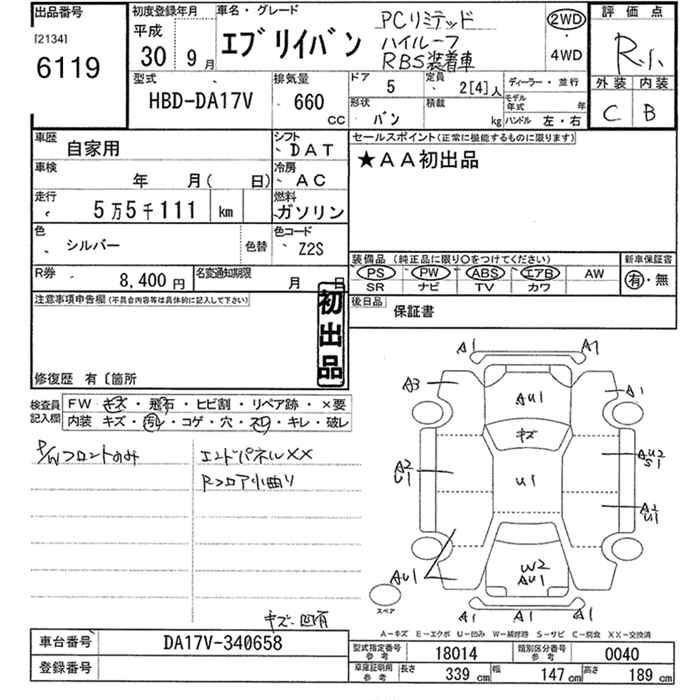 出品番号
[2134]
6119
初度登録年月
平成
30年 9月
車名・グレード
エブリイバン
PCリミテッド
ハイルーフ
RBS装着車
2WD
・
4WD
評価点
R.1.
外装 内装
C B
型式
HBD-DA17V
排気量
660
CC
ドア
5
定員
2[4]人
ディーラー・並行
形状
バン
積載
kg
モデル年式 年
ハンドル 左・右
車歴
自家用
シフト
DAT
セールスポイント(正常に機能するものに限ります)
★AA初出品
車検
年 月( 日)
冷房
AC
走行
5万5千111 km
燃料
ガソリン
色
シルバー
色替
色コード
Z2S
装備品(純正品に限り○をつけてください)
PS PW ABS エアB AW
SR ナビ TV カワ
新車保証書
有・無
R券
8,400円
名変通知期限
月 日
後日品
保証書
注意事項申告欄(不具合内容等は具体的に記入して下さい)
初出品
修復歴 有〔箇所
検査員記入欄
FW キズ・飛石・ヒビ割・リペア跡・×要
内装 キズ・汚レ・コゲ・穴・ヌワ・キレ・破レ
P/Wフロントのみ
エンドパネル××
Rフロア小曲り
キズ・凹有
A1 A1
A3 A1
AU1
キズ
A2
U1
U1
AU2
S1
A2
U1
AU1
W2
AU1
A1 A1
スペア
A-キズ E-エクボ U-凹み W-補修跡 S-サビ C-腐食 XX-交換済
車台番号
DA17V-340658
登録番号
型式指定番号
参考
18014
類別区分番号
参考
0040
車庫証明用
参考
長さ
339 cm
幅
147 cm
高さ
189 cm